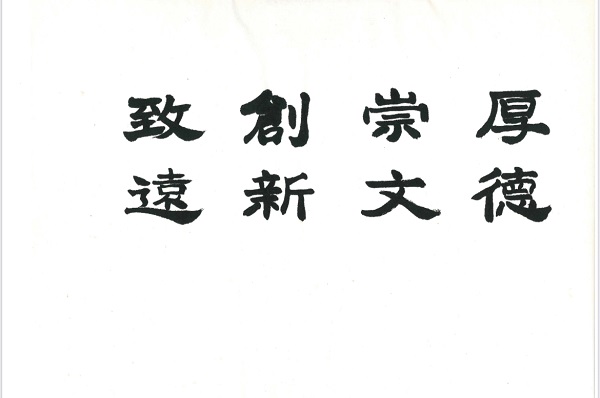 厚德
崇文
創新
致遠